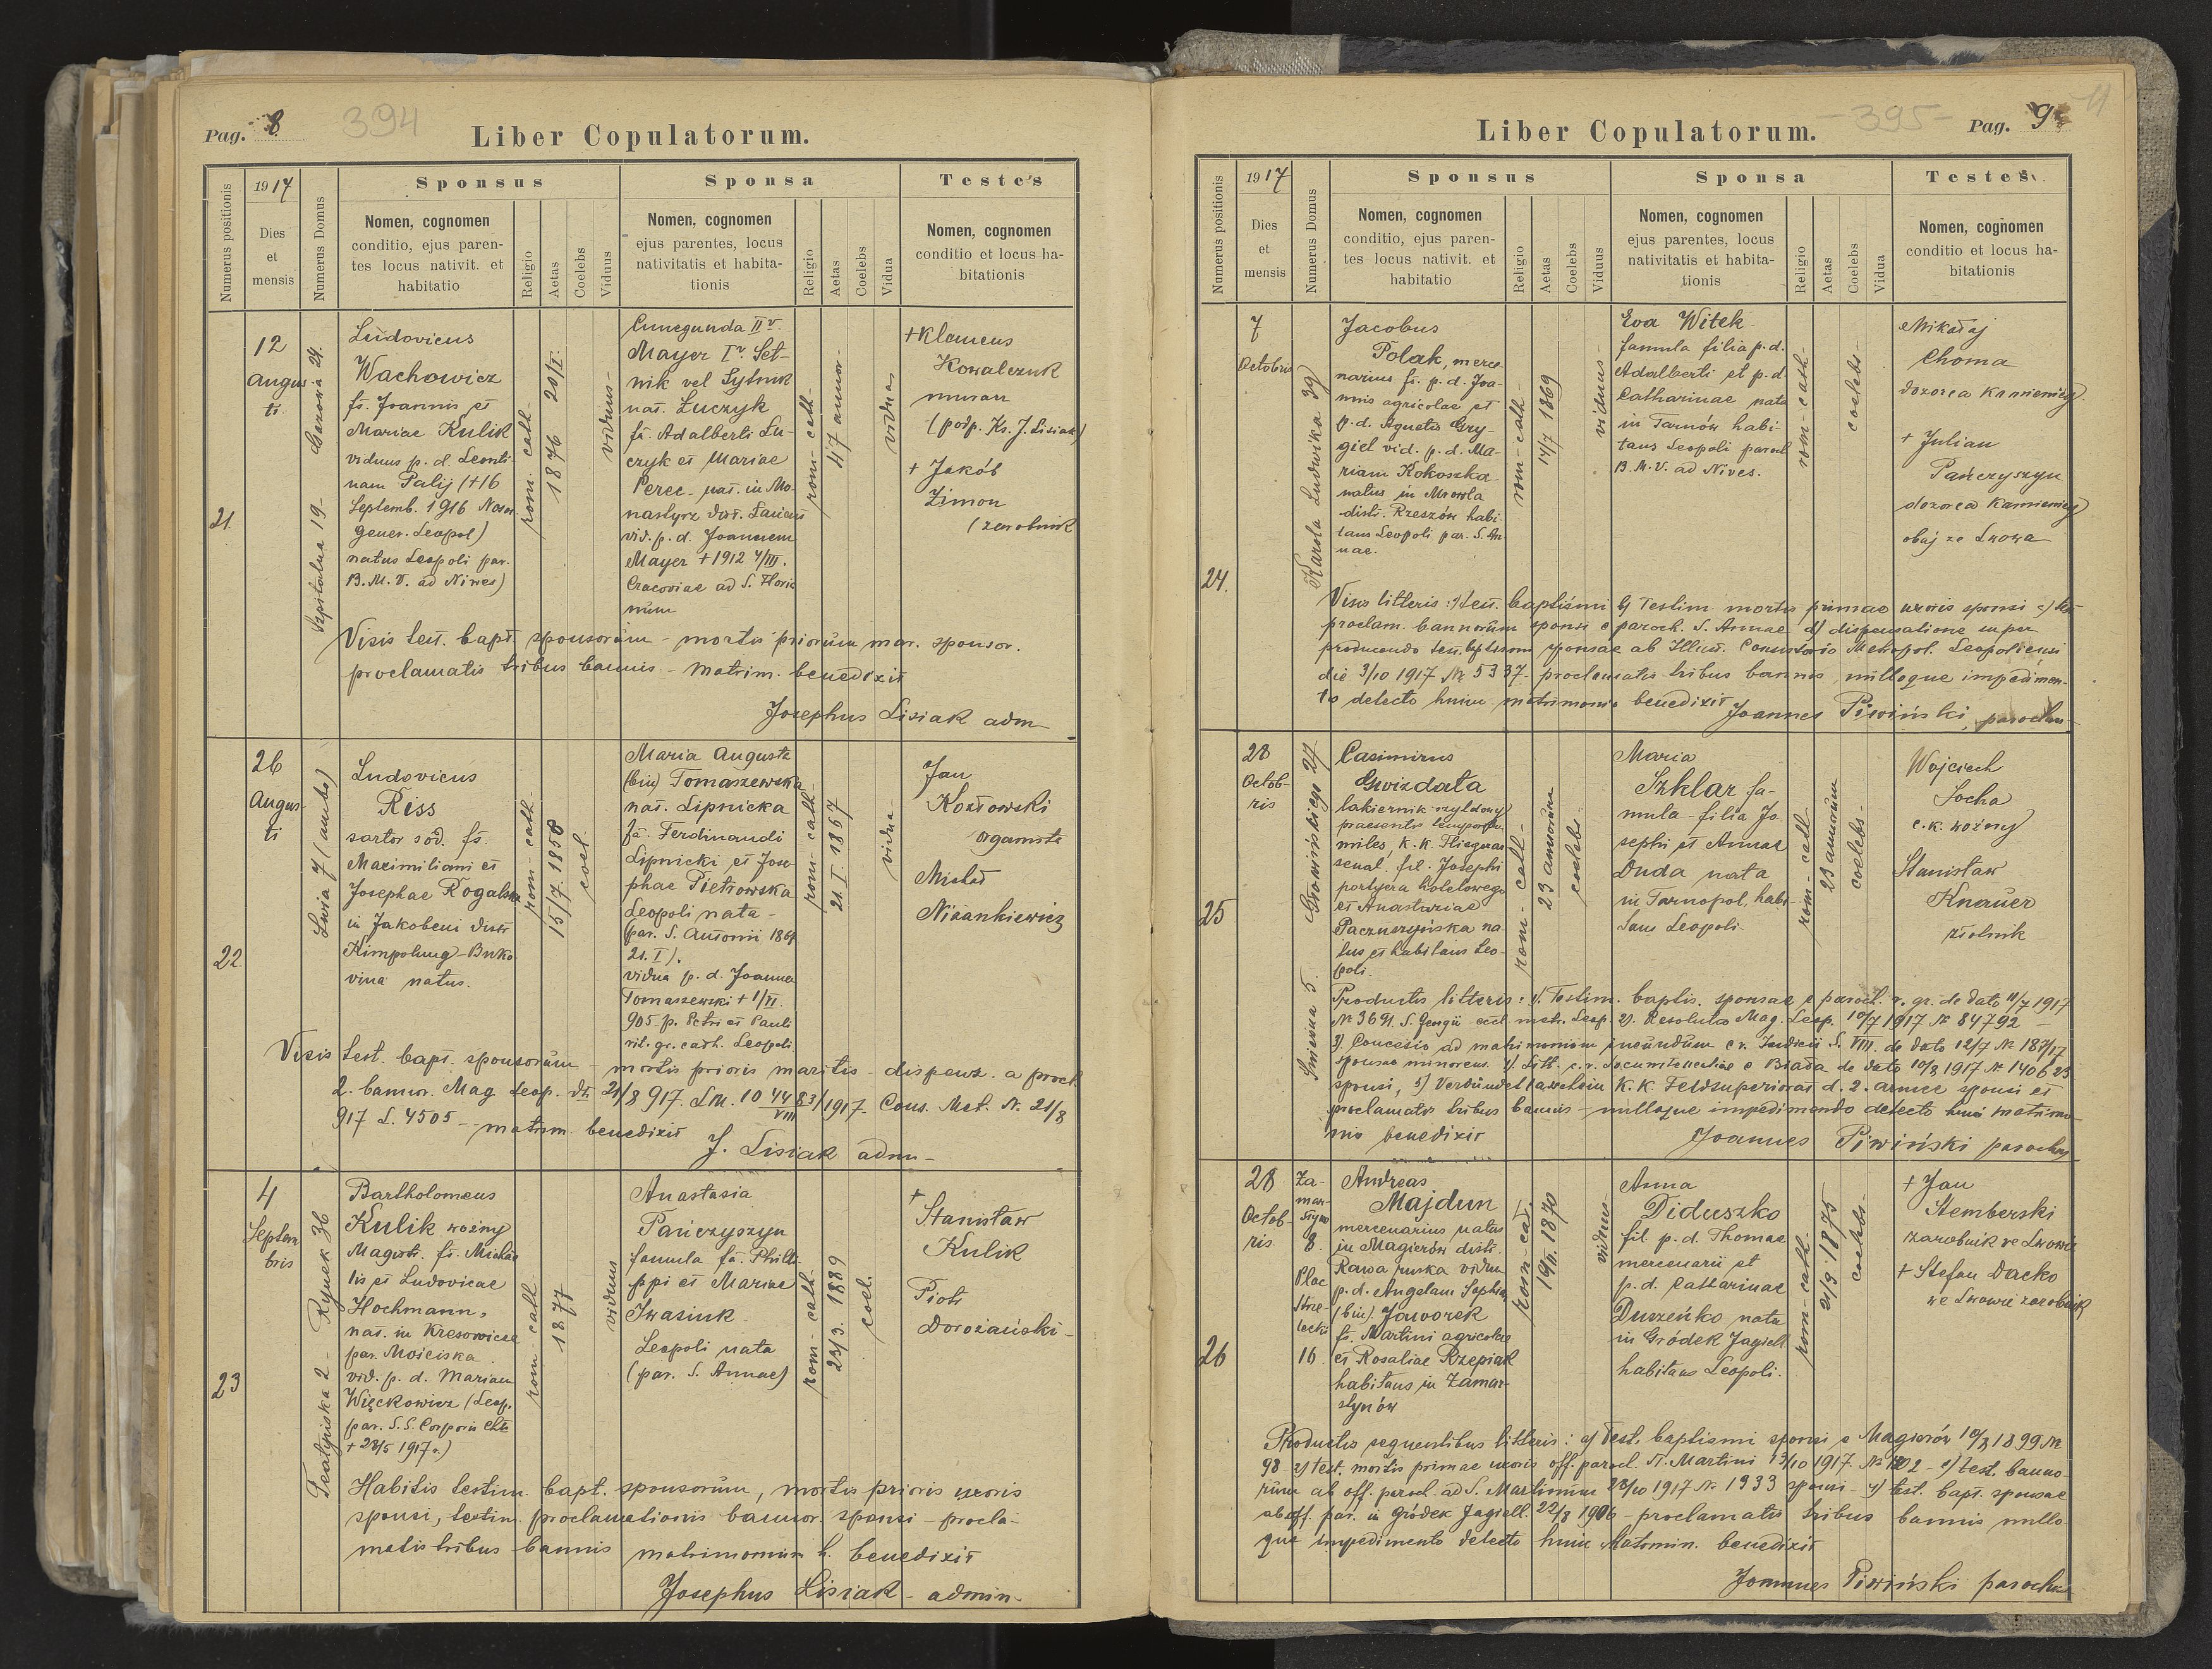 Pag. 8
394
Liber Copulatorum.
Numerus positionis
1917
Dies
et
mensis
Numerus Domus
Sponsus
Nomen, cognomen
conditio, ejus paren-
tes locus nativit. et
habitatio
Religio
Aetas
Coelebs
Viduus
Sponsa
Nomen, cognomen
ejus parentes, locus
nativitatis et habita-
tionis
Religio
Aetas
Coelebs
Vidua
Testes
Nomen, cognomen
conditio et locus ha-
bitationis
21.
12
Augus-
ti.
Szpitalna 19
Ludovicus
Wachowicz
fs. Joannis et
Mariae Kulik
viduus p. d. Leonti-
nam Palij (+16
Septemb. 1916
gener. Leopol)
natus Leopoli par.
B. M. V. ad Nives)
rom. cath.
1876 20/I.
viduus
Cunegunda II v.
Mayer I v. Set-
nik vel Sytnik
nat. Łuczyk
fa. Adalberti Łu-
czyk et Mariae
Perec nat. in Mo-
nastyrz
vid. p. d. Joannem
Mayer +1912 4/III.
Cracoviae ad S. Floria
num
rom. cath.
47 annor.
vidua
+Klemens
Kowalczuk
murarz
(podp. Ks. J. Lisiak)
+ Jakób
Zimon
(zarobnik
Visis test. bapt. sponsorum - mortis priorum mar. sponsor.
proclamatis tribus bannis - matrim. benedixit
Josephus Lisiak adm
22.
26
Augus-
ti
Lwia 7 (ambo)
Ludovicus
Riss
sartor sod. fs.
Maximiliani et
Josephae Rogalska
in Jakobeni distr
Kimpolung - Buko
vina natus.
rom. cath.
15/7. 1858
coel.
Maria Augusta
(bin) Tomaszewska
nat. Lipnicka
fa. Ferdinandi
Lipnicki et Jose
phae Pietrowska
Leopoli nata -
(par. S. Antonii 1867
21. I).
vidua p. d. Joanne
Tomaszewski + 1/VI.
905 p. Petri et Pauli
rit. gr. cath. Leopoli
rom. cath.
21. I. 1867
vidua
Jan
Kozłowski
organista
Michał
Niżankiewicz
Visis test. bapt. sponsorum - mortis prioris maritis - dispens. a procl.
2. bannor. Mag. Leop. 21/8 917. LM. 10 1917. Cons. Met. N. 21/8
917 L. 4505 - matrim. benedixit
J. Lisiak adm -
23
4
Septem
bris
Teatyńska 2 - Rynek 36
Bartholomeus
Kulik woźny
Magistr. fs. Michae
lis et Ludovicae
Hochmann,
nat. in Kresowicze
par. Mościska
vid. p. d. Mariam
Więckowicz (Leop.
par. S. S. Corporis Chti
+ 28/5 1917.)
rom. cath.
1877
viduus
Anastasia
Pańczyszyn
famula fa. Phili-
ppi et Mariae
Iwasiuk
Leopoli nata
(par. S. Annae)
rom. cath.
23/3. 1889
coel.
+
Stanisław
Kulik
Piotr
Dorożański -
Habitis testim. bapt. sponsorum, mortis prioris uxoris
sponsi, testim. proclamationis bannor. sponsi - procla-
matis tribus bannis matrimonium h. benedixit
Josephus Lisiak - admin.
Liber Copulatorum.
-395-
Pag. 9
11
Numerus positionis
1917
Dies
et
mensis
Numerus Domus
Sponsus
Nomen, cognomen
conditio, ejus paren-
tes locus nativit. et
habitatio
Religio
Aetas
Coelebs
Viduus
Sponsa
Nomen, cognomen
ejus parentes, locus
nativitatis et habita-
tionis
Religio
Aetas
Coelebs
Vidua
Testes
Nomen, cognomen
conditio et locus ha-
bitationis
24.
7
Octobris
Karola Ludwika 39
Jacobus
Polak, merce-
narius fs. p. d. Joa-
nnis agricolae et
p. d. Agnetis Gry-
giel vid. p. d. Ma-
riam Kokoszka
natus in Mrowla
distr. Rzeszów habi-
tans Leopoli par. S. An
nae.
rom - cath -
14/7 1869
viduus -
Eva Witek -
famula filia p. d.
Adalberti et p. d.
Catharinae nata
in Tarnów habi-
tans Leopoli paroch
B. M. V. ad Nives.
rom - cath -
coelebs -
Mikołaj
Choma
dozorca kamienicy
+ Julian
Pańczyszyn
dozorca kamienicy
obaj ze Lwowa
Visis litteris: a) test. baptismi b) Testim. mortis primae uxoris sponsi c) test
proclam. bannorum sponsi e paroch. S. Annae d) dispensatione super
producendo test. baptismi sponsae ab Illust. Consistorio Metropol. Leopoliensi
die 3/10 1917 № 5337 - proclamatis tribus bannis nulloque impedimen-
to detecto huic matrimonio benedixit
Joannes Piwiński, parochus
25
28
Octob-
ris
Śnieżna 5.
Casimirus
Gwizdała
lakiernik szyldowy
praesentis tempore
miles, k. k. Fliegerar
senal. fil. Josephi
portjera hotelowego
et Anastaziae
Paczuszyńska na-
tus et habitans Leo-
poli.
rom - cath -
23 annorum
coelebs.
Maria
Szklar fa-
mula - filia Jo
sephi et Annae
Duda nata
in Tarnopol, habi-
tans Leopoli.
rom - cath
23 annorum
coelebs -
Wojciech
Socha
c. k. woźny
Stanisław
Knauer
złotnik
Productis litteris: 1) Testim. baptis. sponsae e paroch. r. gr. de dato 11/7 1917
№ 3691. S. Georgii eccl. metr. Leop. 2) Resolutio Mag. Leop. 10/7 1917 № 84792 -
3) Concesio ad matrimonium ineundum c. r. Judicii S. VIII. de dato 12/7 № 187/17
sponsae minorem. 4) Litt. c. r. e Biała de dato 10/8 1917 № 140623
sponsi, 5) K. K. Feldsuperiorat d. 2. Armee sponsi et
proclamatis tribus bannis - nulloque impedimendo detecto huic matrimo-
nio benedixit
Joannes Piwiński parochus
26
28
Octob-
ris
Za-
mar-
styno
8.
Plac
Strze-
lecki
16
Andreas
Majdun
mercenarius natus
in Magierów distr.
Rawa ruska vidu
p. d. Angelam Sophiam
(bin) Jaworek
fs. Martini agricolae
et Rosaliae Rzepiak
habitans in Zamar-
stynów
rom - cat.
19/II. 1870
viduus -
Anna
Diduszko
fil p. d. Thomae
mercenarii et
p. d. Catharinae
Duszeńko nata
in Gródek Jagiell.
habitans Leopoli.
rom - cath -
21/9 1875
coelebs -
+ Jan
Stemberski
zarobnik ze Lwowa
+ Stefan Dacko
we Lwowie zarobnik
Productis sequentibus litteris: a) Test. baptismi sponsi e Magierów 10/8 1899 №
98 - 2) test. mortis primae uxoris off. paroch. St. Martini 13/10 1917. № - 3) test. banno-
rum ab off. paroch. ad S. Martinum 28/10 1917 № 1933 sponsi - 4) test. bapt. sponsae
ab off. par. in Gródek Jagiell. 22/8 1906 - proclamatis tribus bannis nullo-
que impedimento detecto huic Matrimon. benedixit
Joannes Piwiński parochus